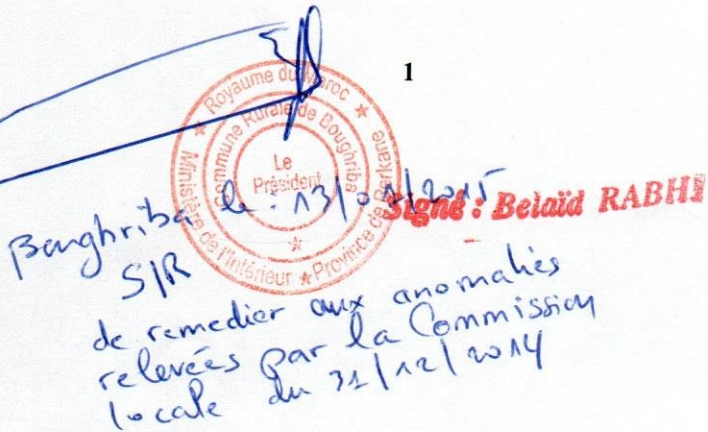 1
★ Royaume du Maroc ★
Ministère de l'Intérieur ★ Province de Berkane
Commune Rurale de Boughriba
Le
Président
★
Boughriba le : 13/01/2015
Signé : Belaïd RABHI
S/R
de remedier aux anomalies
relevées par la Commission
locale du 31/12/2014